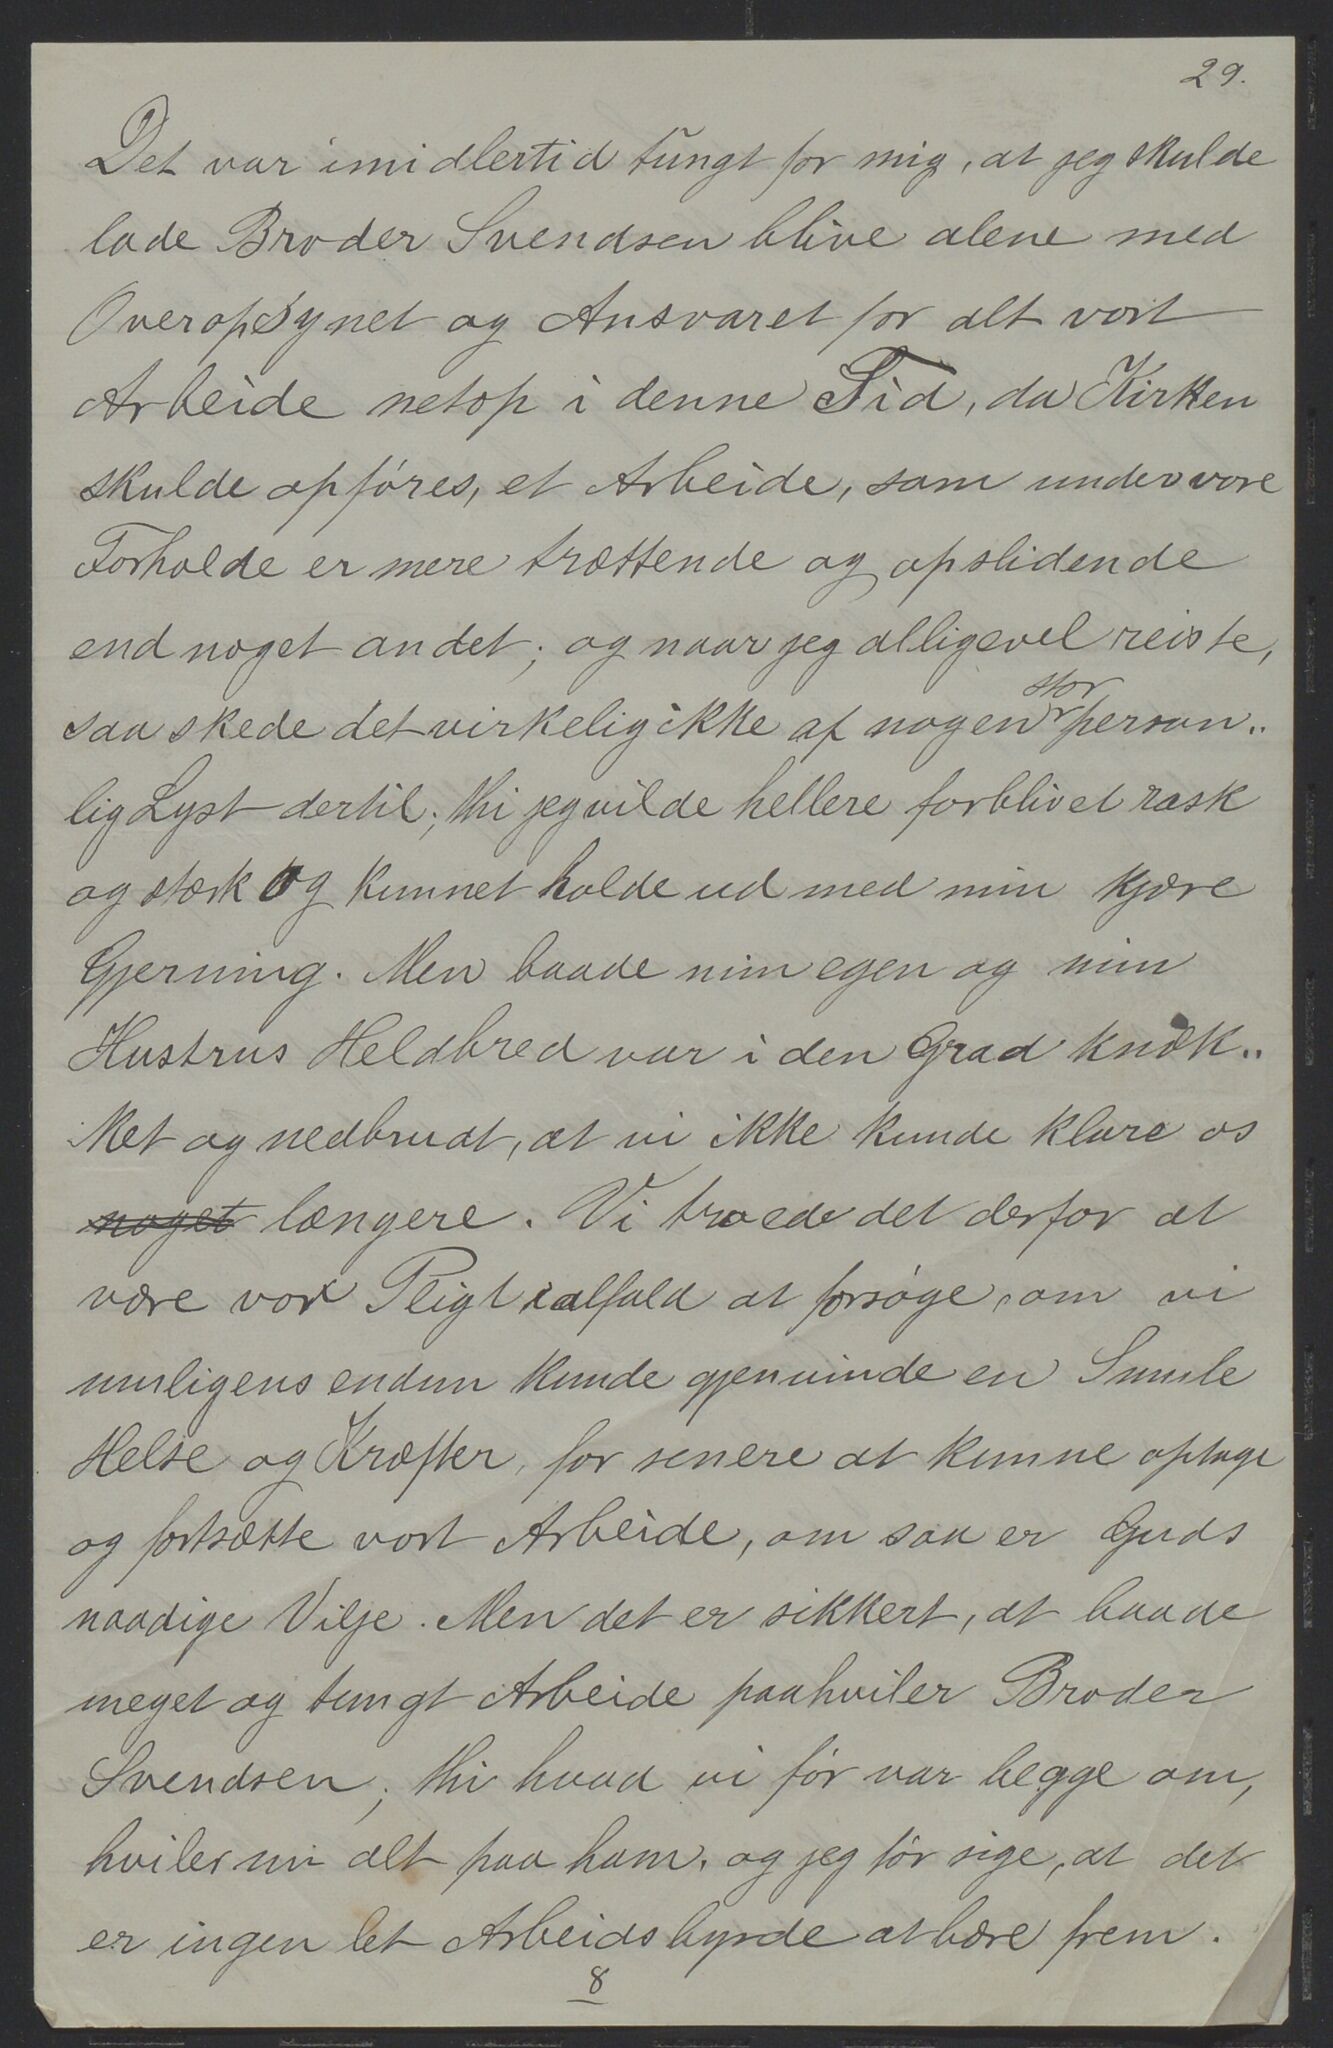 29.
Det var imidlertid tungt for mig, at jeg skulde
lade Broder Svendsen blive alene med
Overopsynet og Ansvaret for alt vort
Arbeide netop i denne Tid, da Kirken
skulde opføres, et Arbeide, som under vore
Forholde er mere trættende og opslidende
end noget andet; og naar jeg alligevel reiste,
saa skede det virkelig ikke af nogen stor person..
lig Lyst dertil; thi jeg vilde hellere forblivet rask
og stærk og kunnet holde ud med min kjære
Gjerning. Men baade min egen og min
Hustrus Heldbred var i den Grad knæk..
ket og nedbrudt, at vi ikke kunde klare os
noget længere. Vi troede det derfor at
være vor Pligt ialfald at forsøge, om vi
muligens endnu kunde gjenvinde en Smule
Helse og Kræfter, for senere at kunne optage
og fortsætte vort Arbeide, om saa er Guds
naadige Vilje. Men det er sikkert, at baade
meget og tungt Arbeide paahviler Broder
Svendsen; thi hvad vi før var begge om,
hviler nu alt paa ham, og jeg tør sige, at det
er ingen let Arbeidsbyrde at bære frem.
8